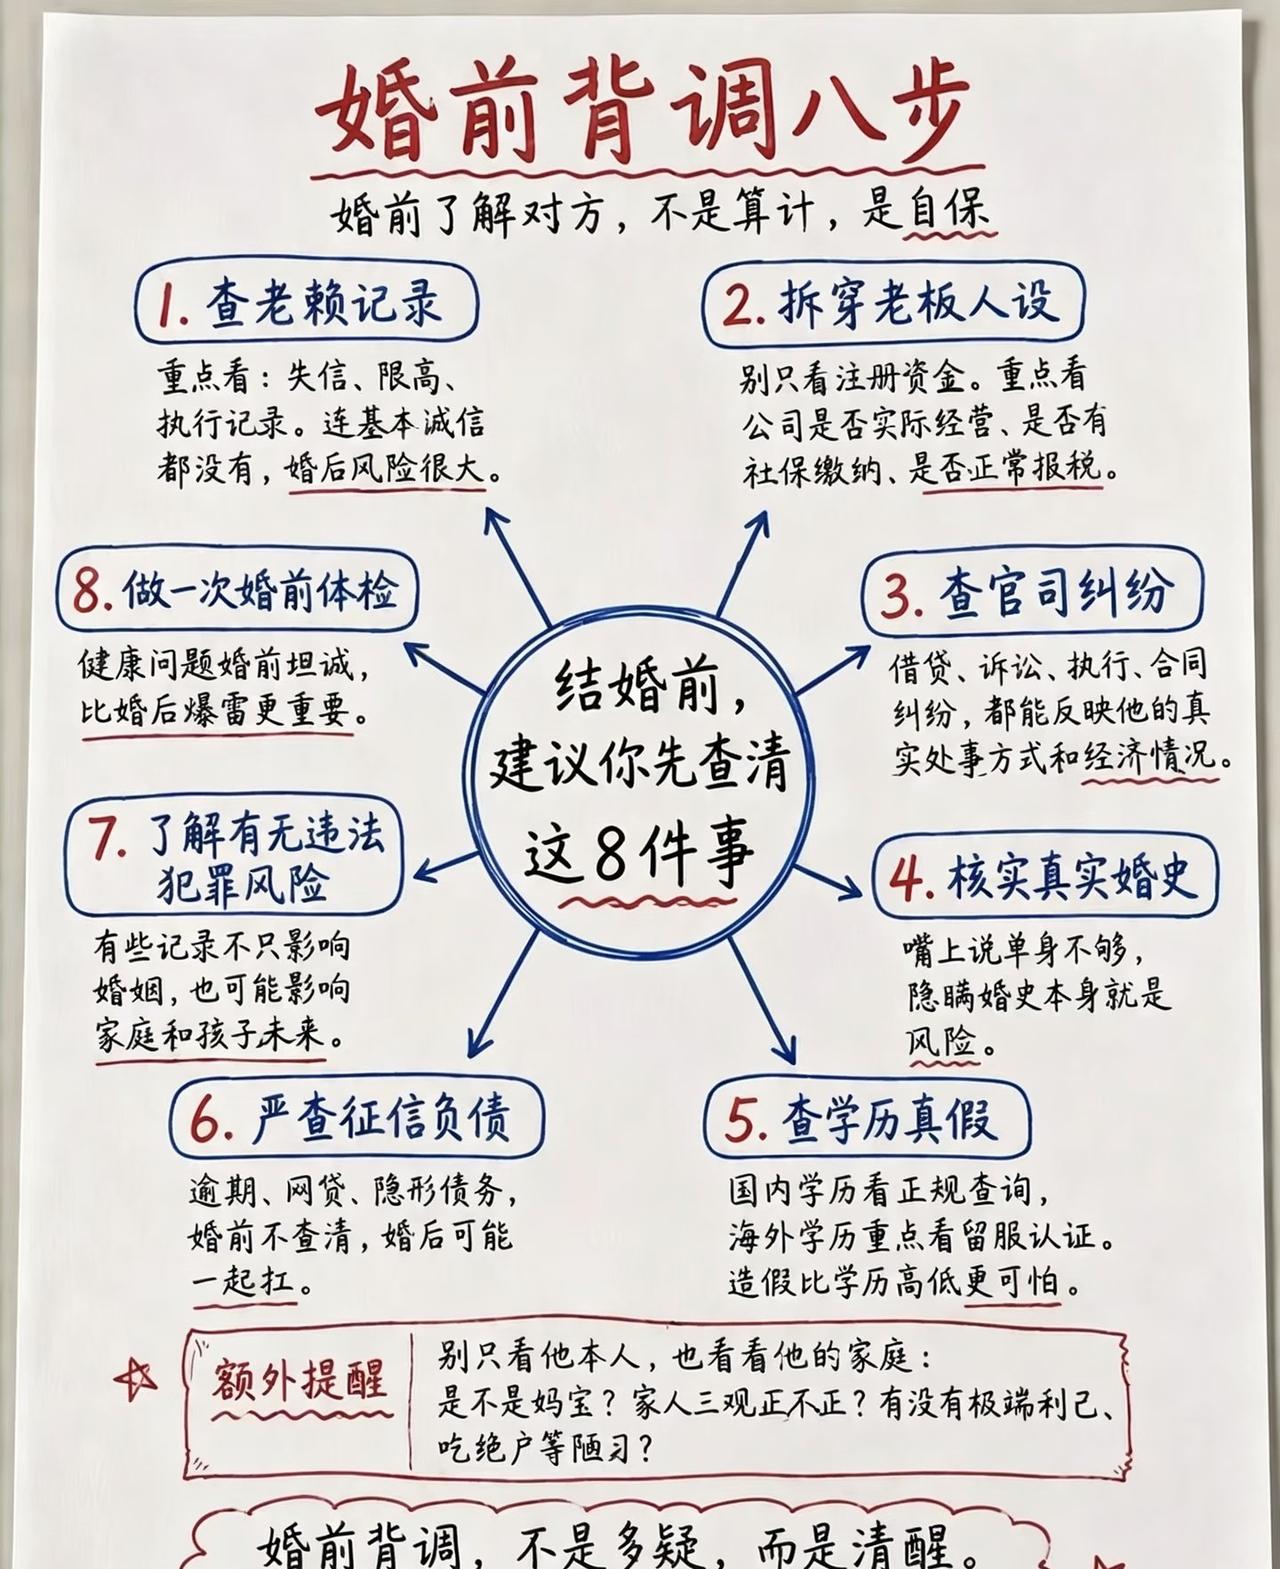 婚前背调八步
婚前了解对方，不是算计，是自保
1. 查老赖记录
重点看：失信、限高、
执行记录。连基本诚信
都没有，婚后风险很大。
2. 拆穿老板人设
别只看注册资金。重点看
公司是否实际经营、是否有
社保缴纳、是否正常报税。
3. 查官司纠纷
借贷、诉讼、执行、合同
纠纷，都能反映他的真
实处事方式和经济情况。
4. 核实真实婚史
嘴上说单身不够，
隐瞒婚史本身就是
风险。
5. 查学历真假
国内学历看正规查询，
海外学历重点看留服认证。
造假比学历高低更可怕。
6. 严查征信负债
逾期、网贷、隐形债务，
婚前不查清，婚后可能
一起扛。
7. 了解有无违法
犯罪风险
有些记录不只影响
婚姻，也可能影响
家庭和孩子未来。
8. 做一次婚前体检
健康问题婚前坦诚，
比婚后爆雷更重要。
结婚前，
建议你先查清
这8件事
额外提醒
别只看他本人，也看看他的家庭：
是不是妈宝？家人三观正不正？有没有极端利己、
吃绝户等陋习？
婚前背调，不是多疑，而是清醒。